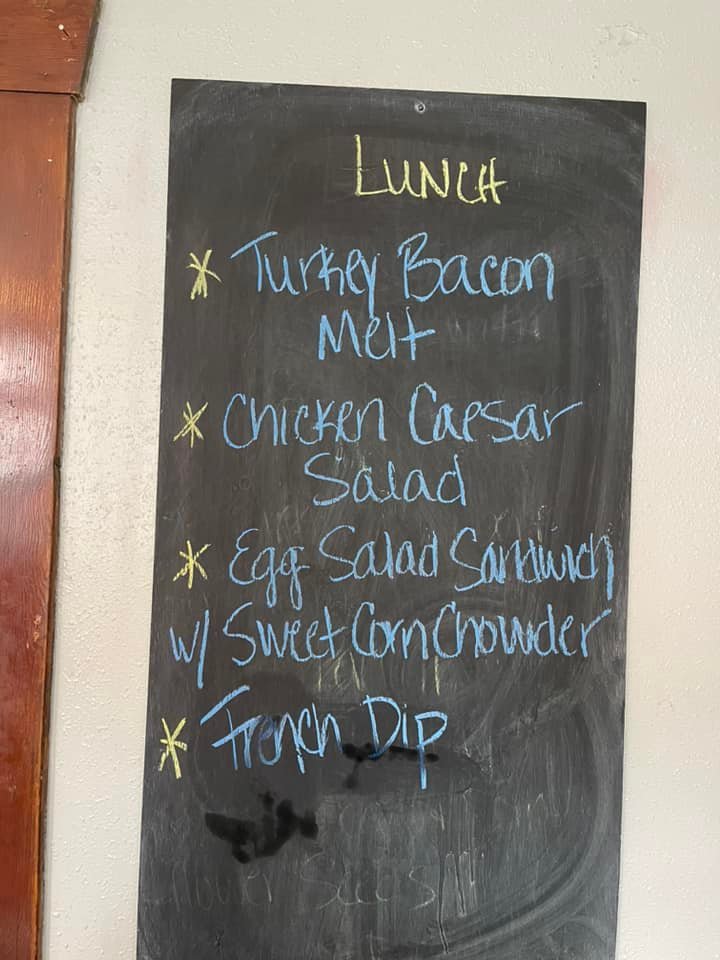 LUNCH
* Turkey Bacon
Melt
* Chicken Caesar
Salad
* Egg Salad Sandwich
w/ Sweet Corn Chowder
* French Dip